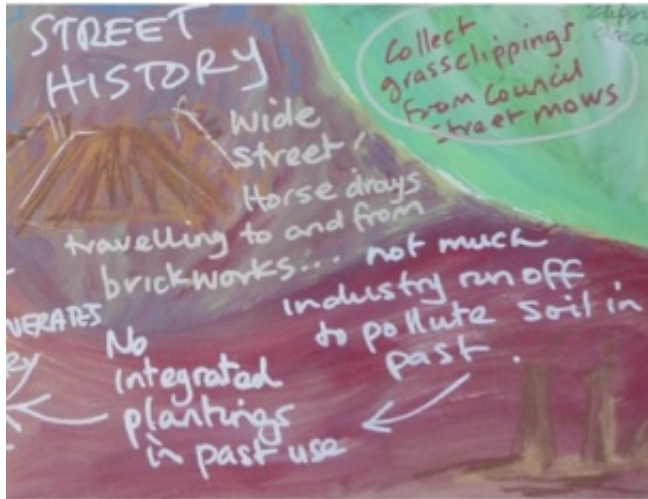 STREET
HISTORY
Wide
street!
Horse drays
travelling to and from
brickworks...
not much
industry run off
to pollute soil in
past.
No
integrated
plantings
in past use
Collect
grassclippings
from Council
street mows